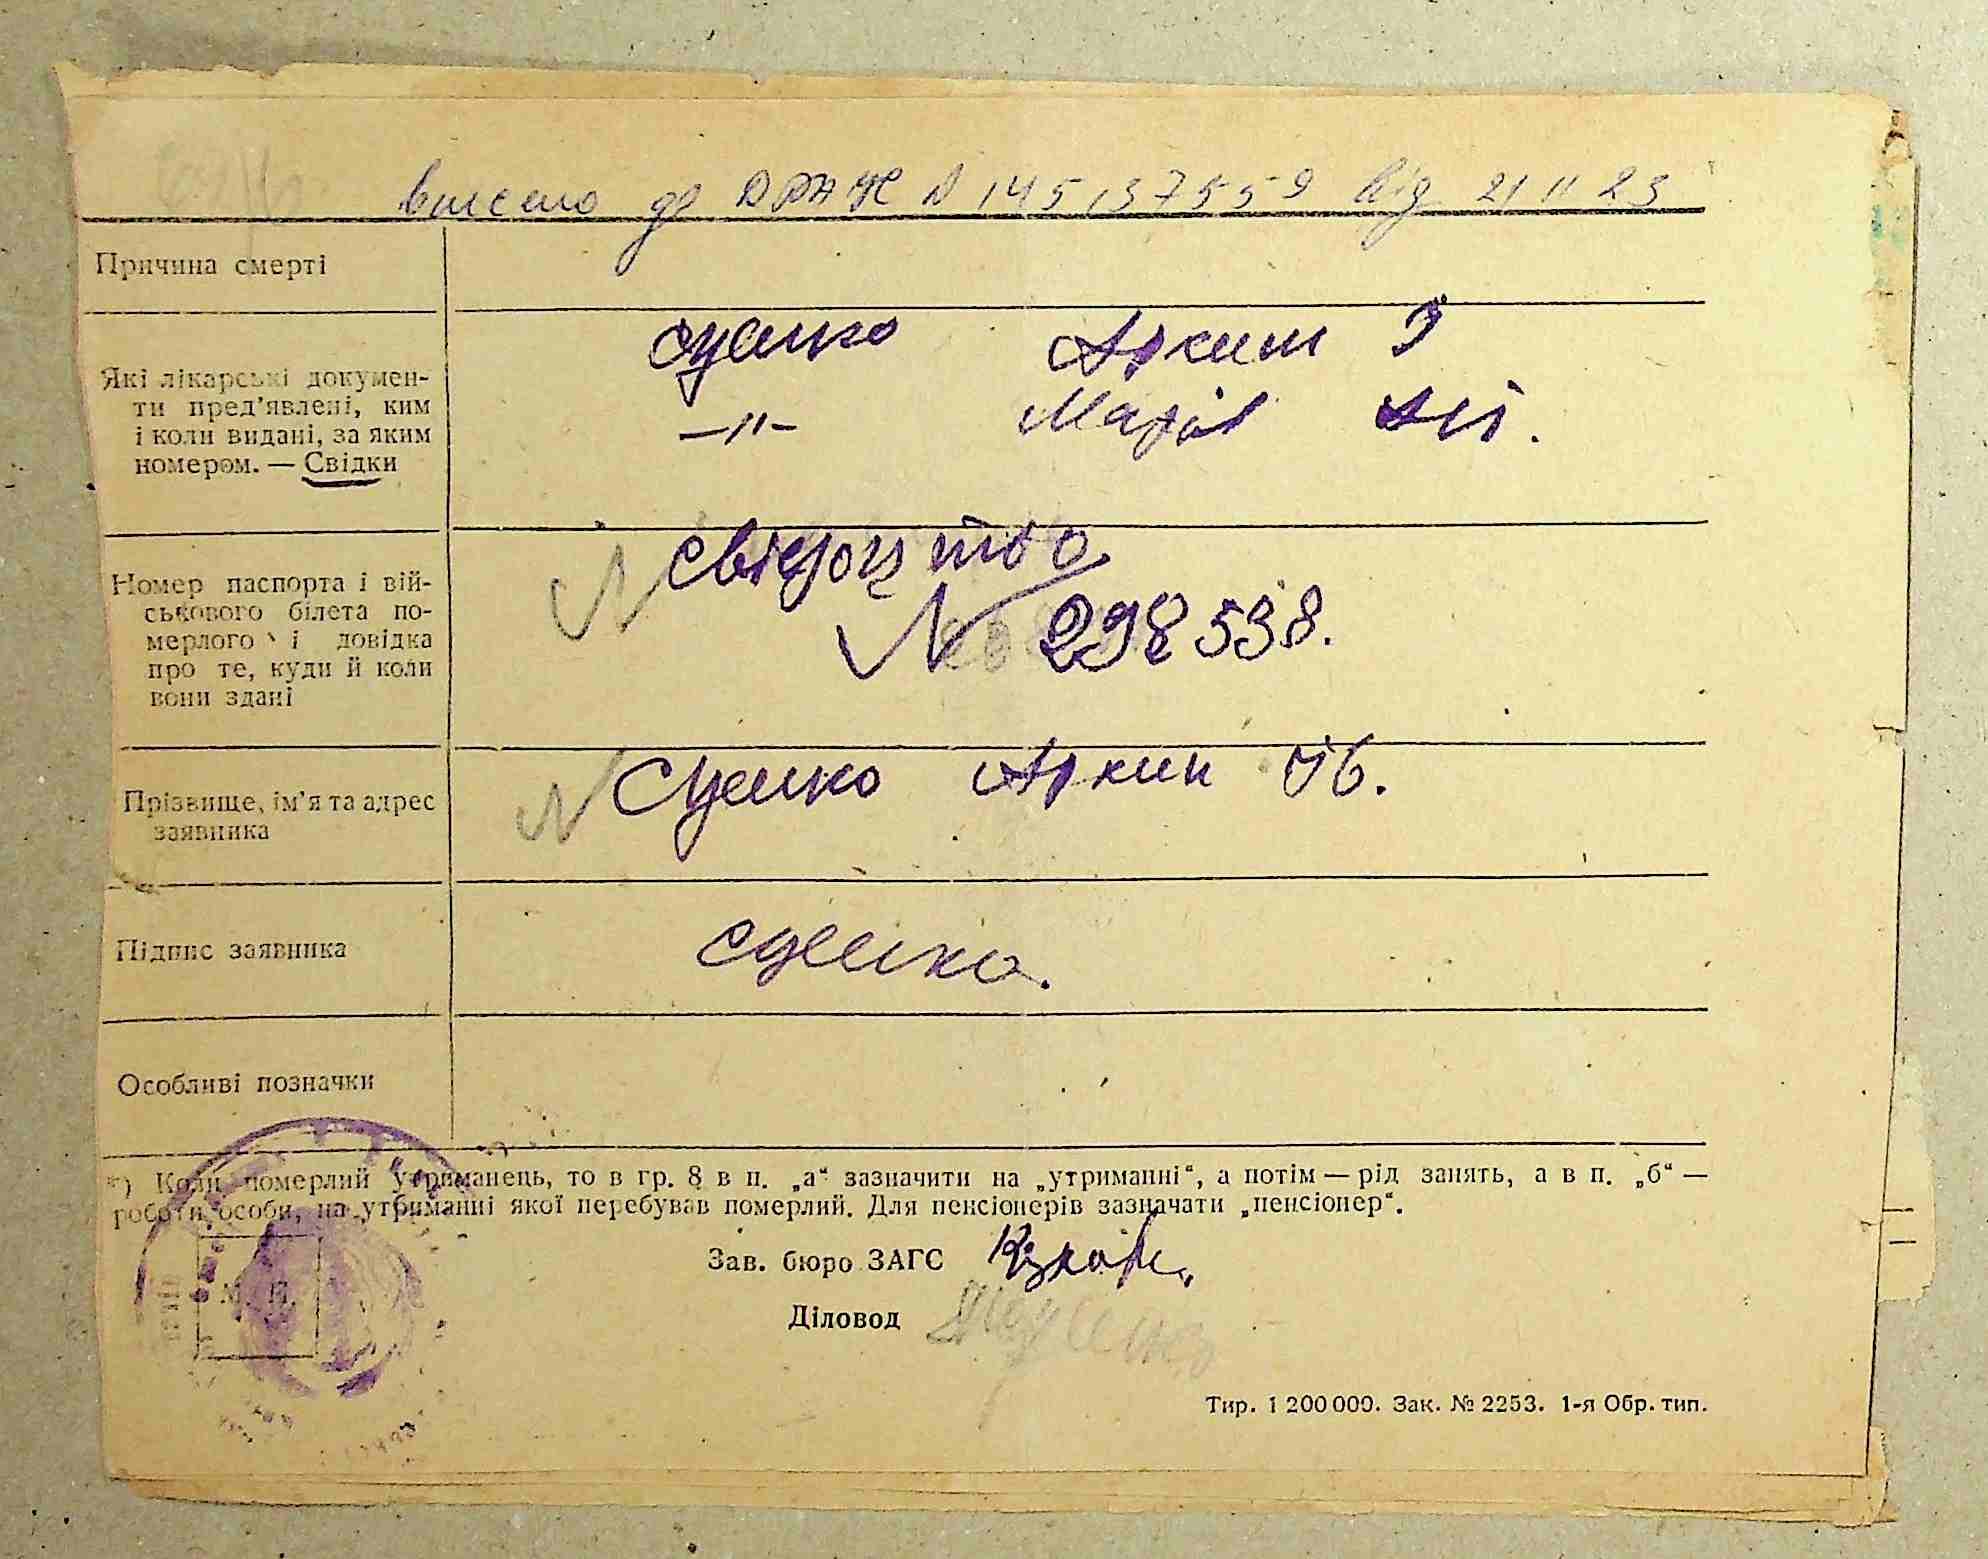 внесено до ДРАЦС № 145137559 від 21 11 23
Причина смерті
Які лікарські докумен-
ти пред'явлені, ким
і коли видані, за яким
номером. — Свідки
— ״ — Марія
Номер паспорта і вій-
ськового білета по-
мерлого і довідка
про те, куди й коли
вони здані
Свідоцтво
№ 298538.
Прізвище, ім'я та адрес
заявника
Підпис заявника
Особливі позначки
*) Коли померлий утриманець, то в гр. 8 в п. „а“ зазначити на „утриманні“, а потім — рід занять, а в п. „б“ —
роботи особи, на утриманні якої перебував померлий. Для пенсіонерів зазначати „пенсіонер“.
М. П.
Зав. бюро ЗАГС
Діловод
Тир. 1 200 000. Зак. № 2253. 1-я Обр. тип.